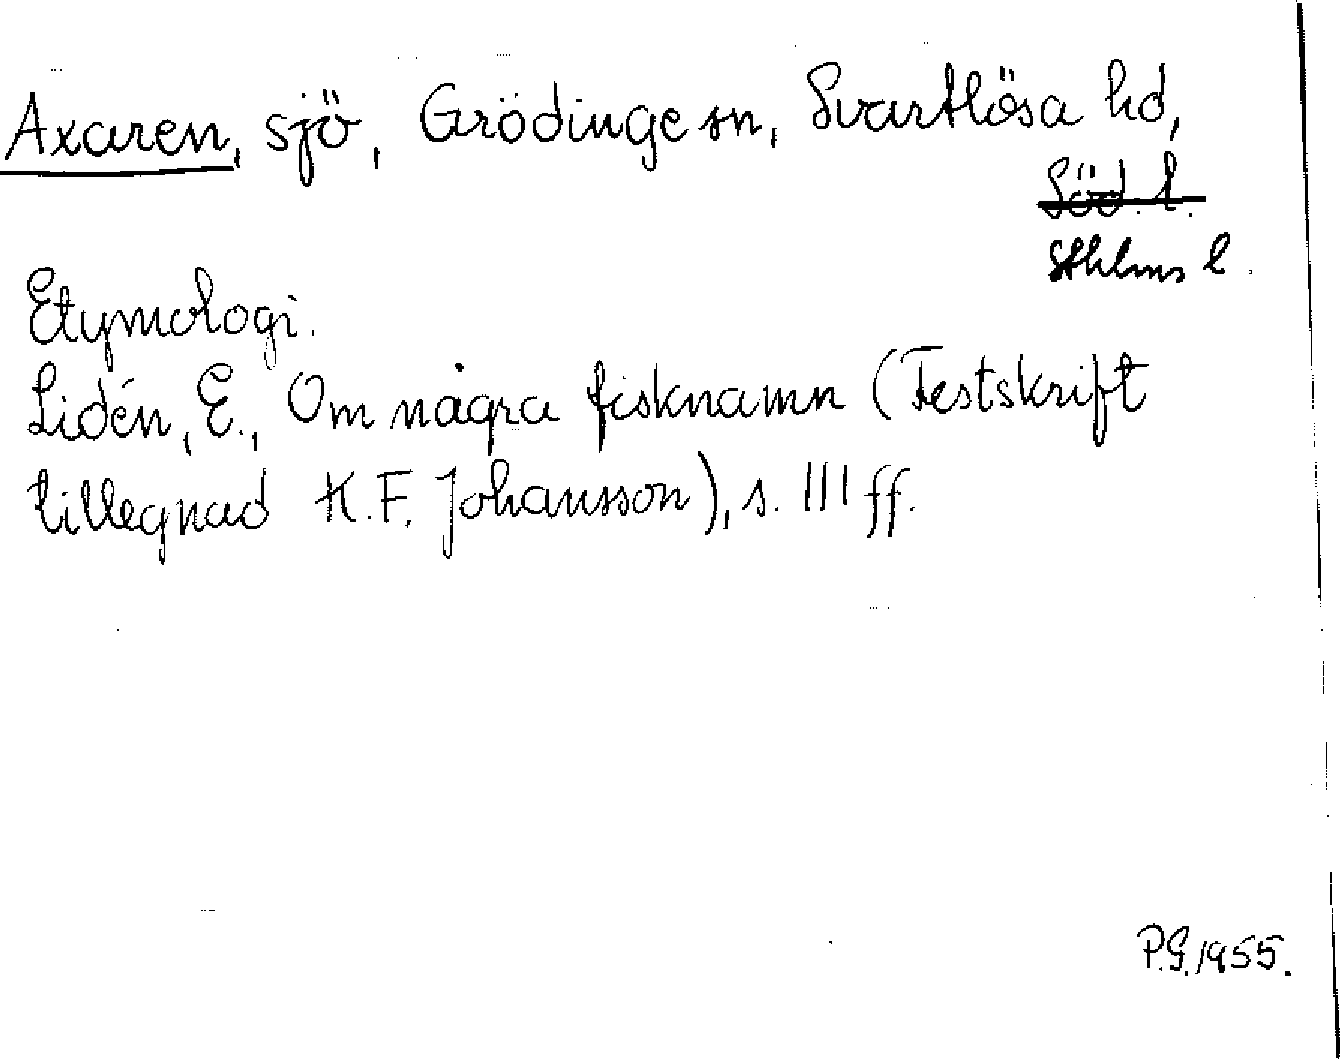 Axaren, sjö, Grödinge sn, Svartlösa hd,
Söd. l.
Sthlms l.
Etymologi.
Lidén, E., Om några fisknamn (Festskrift
tillegnad K.F. Johansson), s. 111 ff.
P.G. 1955.